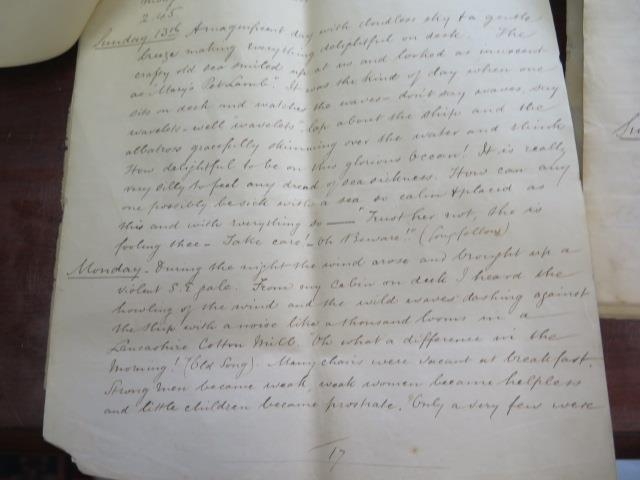 2.45
Sunday 13th A magnificent day with cloudless sky & a gentle
breeze making everything delightful on deck. The
crafty old sea smiled up at us and looked as innocent
as "Mary's Pet Lamb". It was the kind of day when one
sits on deck and watches the waves - don't say waves, say
wavelets - well "wavelets" lap about the ship and the
albatross gracefully skimming over the water and think
How delightful to be on this glorious Ocean! It is really
very silly to feel any dread of sea sickness. How can any
one possibly be sick with a sea so calm & placid as
this and with everything so — "Trust her not, she is
fooling thee - Take care! Oh Beware!!" (Longfellow)
Monday - During the night the wind arose and brought up a
violent S.E gale. From my cabin on deck I heard the
howling of the wind and the wild waves dashing against
the ship with a noise like a thousand looms in a
Lancashire Cotton Mill. Oh what a difference in the
Morning! (Old Song). Many chairs were vacant at breakfast.
Strong men became weak, weak women became helpless
and little children became prostrate. Only a very few were
17